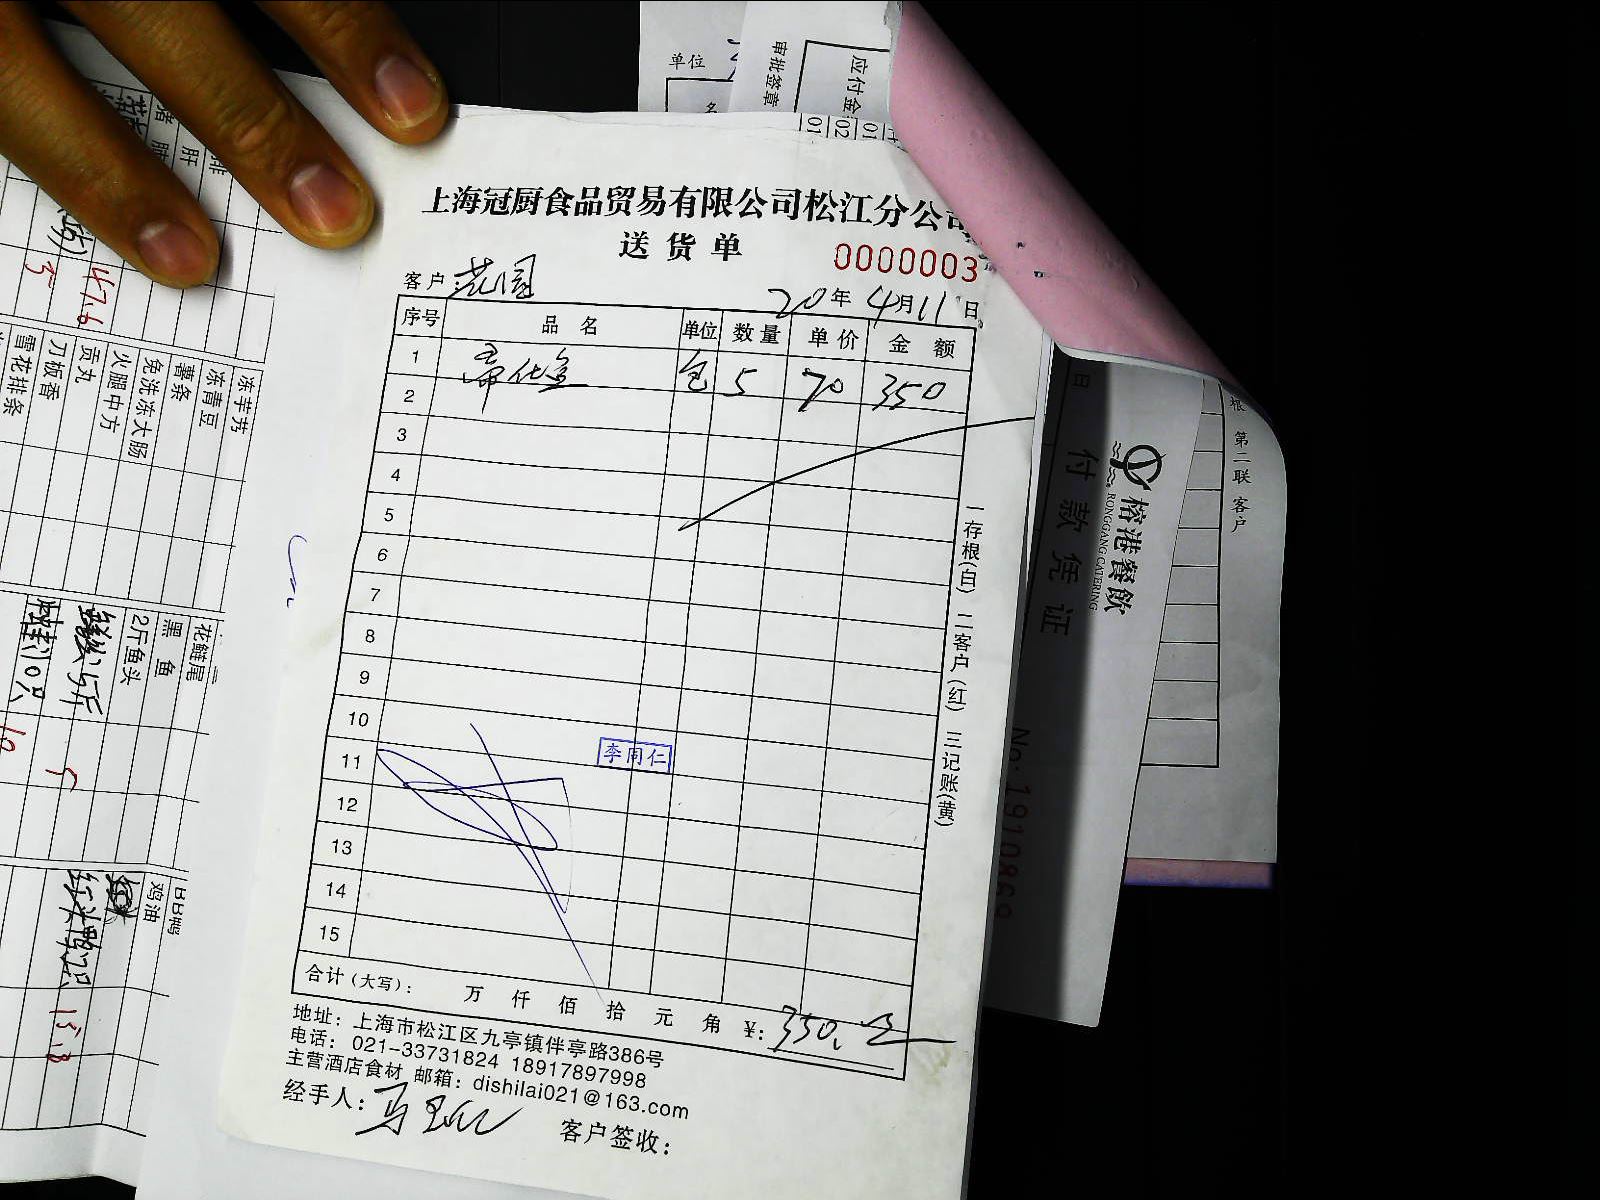 单位
审批签章
应付金
上海冠厨食品贸易有限公司松江分公司
送货单
0000003
客户 花园
20年 4月11日
序号 品名 单位 数量 单价 金额
1 包 5 70 350
2
3
4
5
6
7
8
9
10
11
12
13
14
15
李同仁
合计(大写): 万 仟 佰 拾 元 角 ¥: 350.
地址: 上海市松江区九亭镇伴亭路386号
电话: 021-33731824 18917897998
主营酒店食材 邮箱: dishilai021@163.com
经手人:
客户签收:
一存根(白) 二客户(红) 三记账(黄)
榕港餐飲
RONGGANG CATERING
付款凭证
No:1910869
第二联 客户
猪肺
肝
47.6
5
冻芋艿
冻青豆
薯条
免洗冻大肠
火腿中方
贡丸
刀板香
雪花排条
花鲢尾
黑鱼
2斤鱼头
10只
BB鸭
鸡油